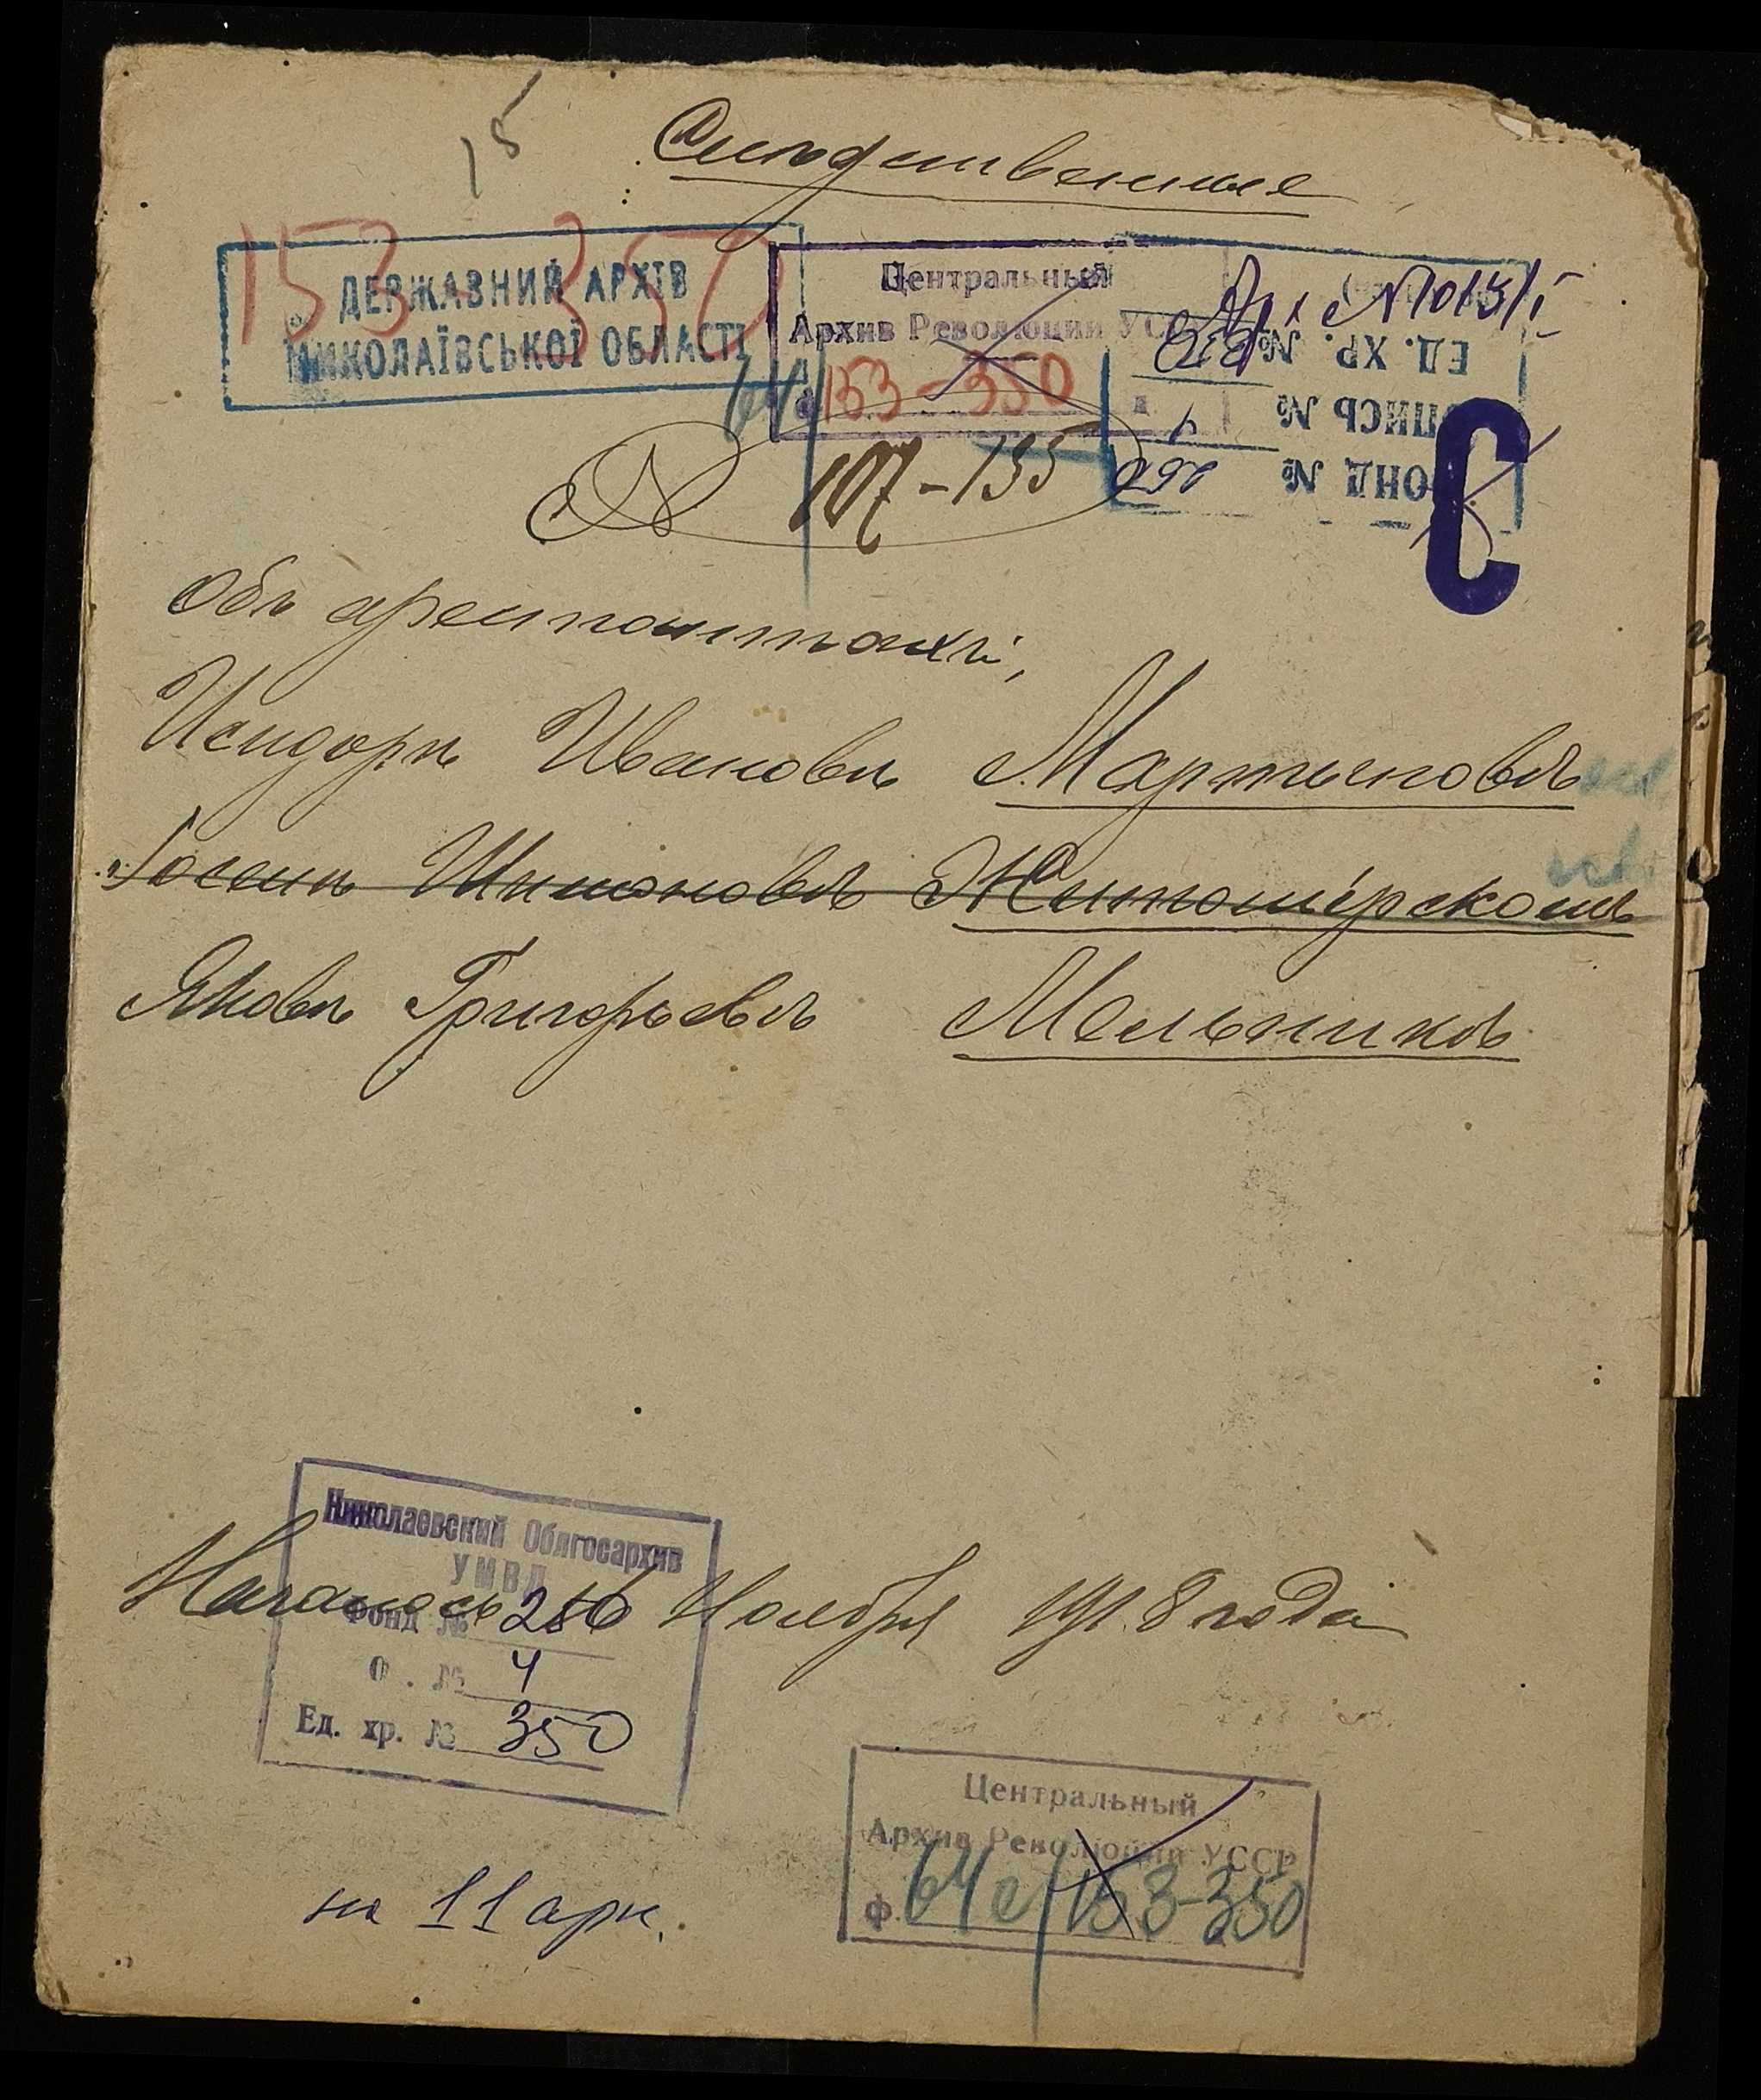 15
Слѣдственные
153 350
ДЕРЖАВНИЙ АРХІВ
МИКОЛАЇВСЬКОЇ ОБЛАСТІ
Центральный
Архив Революции УС
153-350
Арх №1015/
ЕД. ХР. № 350
ОПИСЬ № 4
ФОНД №
С
№ 107-135
Объ арестантахъ,
Исидоръ Ивановъ Мартыновъ
Іосепъ Шимоновъ Житомірскомъ
Яковъ Григорьевъ Мельниковъ
Николаевский Облгосархив
УМВД
Началось 26 Ноября 1918 года
Фонд № 250
О . № 4
Ед. хр. № 350
Центральный
Архив Революции УССР
ф. 64с/153-350
на 11 арк.